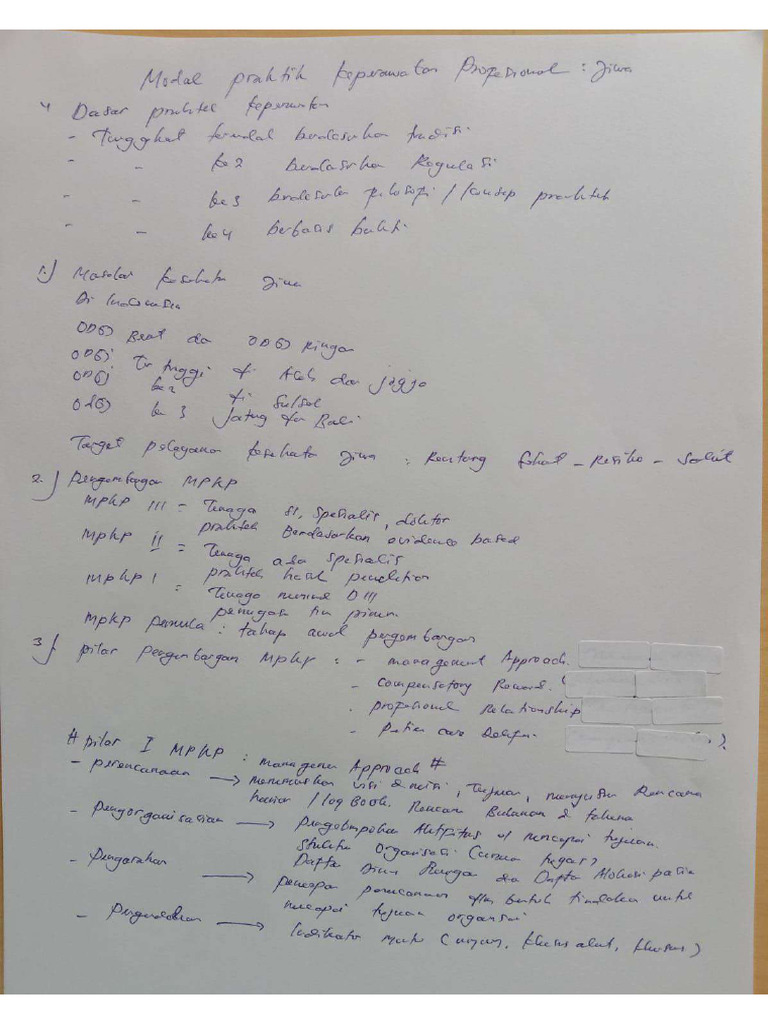 Model praktik keperawatan Profesional : Jiwa
4 Dasar praktek keperawatan
- Tingkat terendah berdasarkan tradisi
- - ke 2 berdasarkan Regulasi
- - ke 3 berdasarkan filosofi / konsep praktek
- - ke 4 berbasis bukti
1.) Masalah kesehatan Jiwa
Di Indonesia
ODGJ Berat dan ODGJ Ringan
ODGJ Tertinggi di Aceh dan Jogja
ODGJ ke 2 di Sulsel
ODGJ ke 3 Jateng dan Bali
Target pelayanan kesehatan Jiwa : Rentang Sehat - Resiko - Sakit
2.) Pengembangan MPKP
MPKP III = Tenaga S1, Spesialis, doktor
praktek Berdasarkan evidence based
MPKP II = Tenaga ada Spesialis
praktek hasil penelitian
MPKP I : Tenaga minimal D III
penugasan tim primer
MPKP pemula : tahap awal pengembangan
3.) pilar pengembangan MPKP : - management Approach.
- Compensatory Reward. (
- profesional Relationship
- Patien care Delivery )
# pilar I MPKP : management Approach #
- perencanaan → merumuskan visi & misi, Tujuan, menyusun Rencana
harian / log Book. Rencana Bulanan & tahunan
- Pengorganisasian → Pengelompokan Aktifitas u/ mencapai tujuan.
Struktur Organisasi (uraian tugas)
Daftar Dinas Ruangan dan Daftar Alokasi pasien
- Pengarahan → penerapan perencanaan dlm bentuk tindakan untuk
mencapai tujuan organisasi
- Pengendalian → Indikator mutu (umum, khusus)